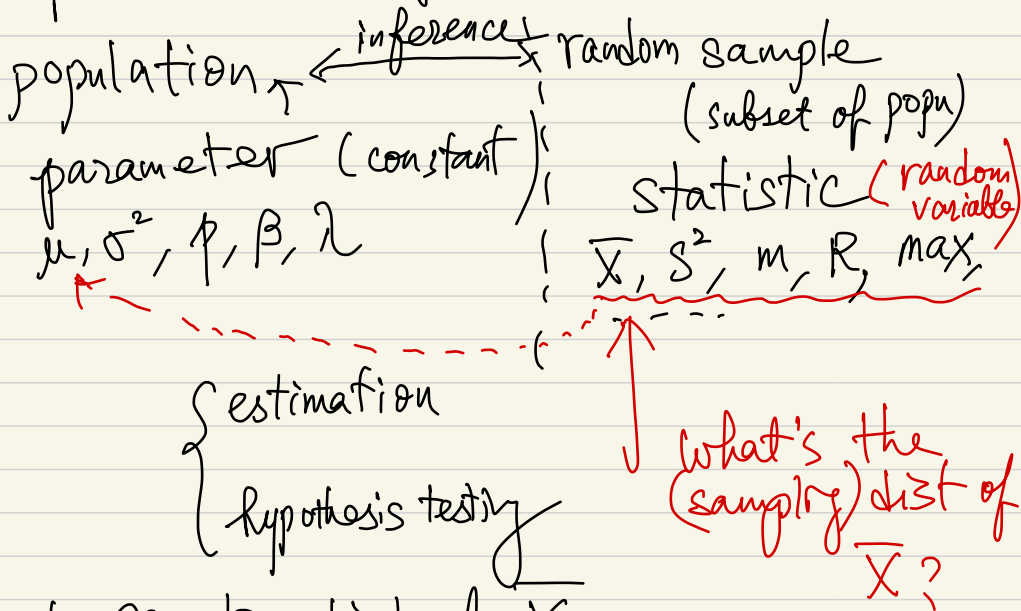 inference
population random sample
(subset of popu)
parameter (constant) statistic (random variable)
μ, σ², p, β, λ X̄, S², m, R, max,
{ estimation
hypothesis testing
What's the
(sampling) dist of
X̄ ?